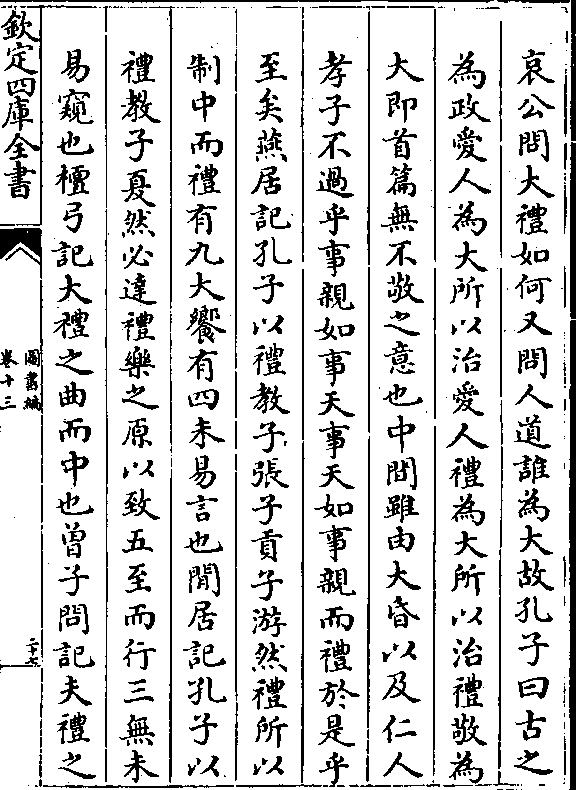 哀公問大禮如何又問人道誰為大故孔子曰古之
為政愛人為大所以治愛人禮為大所以治禮敬為
大即首篇無不敬之意也中間雖由大昏以及仁人
孝子不過乎事親如事天事天如事親而禮於是乎
至矣燕居記孔子以禮教子張子貢子游然禮所以
制中而禮有九大饗有四未易言也閒居記孔子以
禮教子夏然必達禮樂之原以致五至而行三無未
易窺也檀弓記大禮之曲而中也曾子問記夫禮之
欽定四庫全書
圖書編
卷十三
二十七